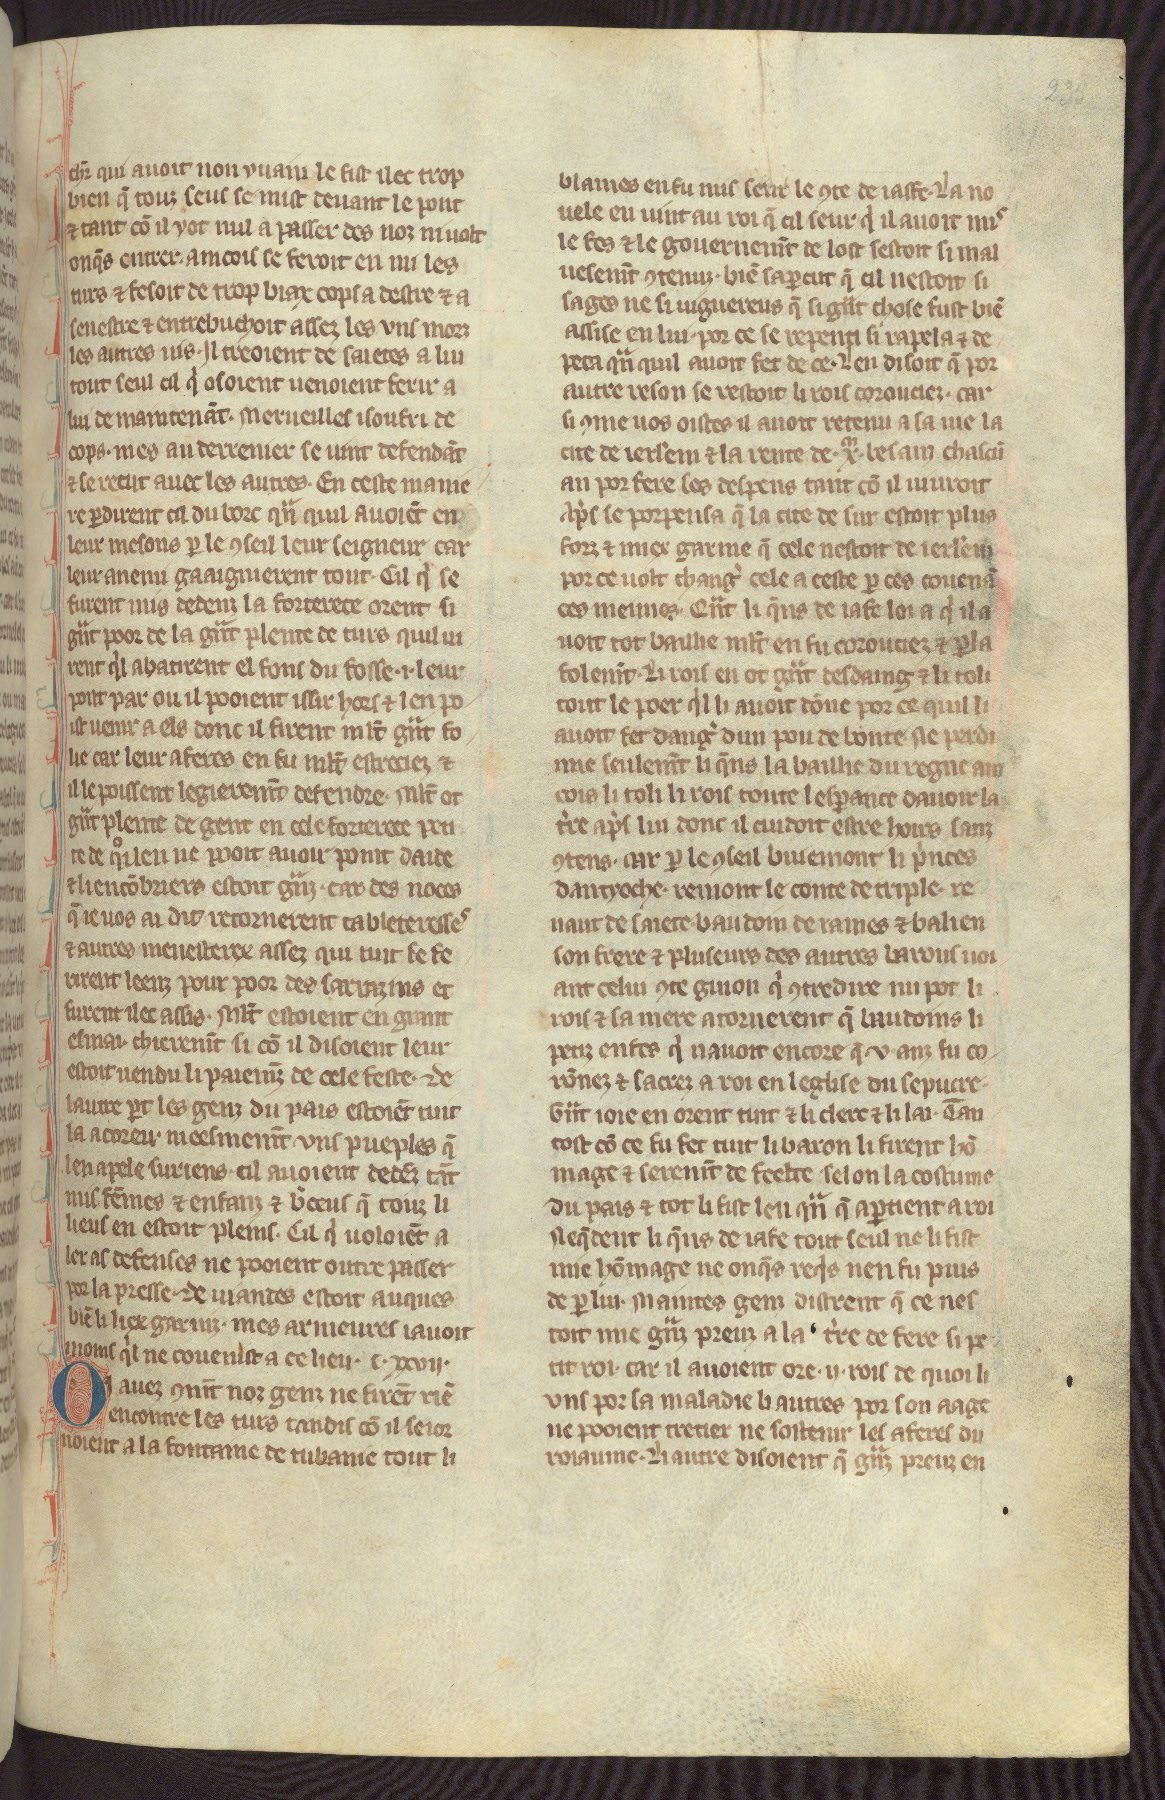 chr̃ qui auoit non yuain le fist ilec trop
bien q̃ touz seus se mist deuant le pont
⁊ tant cõ il yot nul a passer des noz ni uolt
onq̃s entrer. aincois se feroit en mi les
turs ⁊ fesoit de trop biax cops a destre ⁊ a
senestre ⁊ entrebuchoit assez les vns morz
les autres uis. Il treoient de saietes a lui
tout seul cil qͥ osoient uenoient ferir a
lui de maintenãt. Merueilles i soufri de
cops. mes au derrenier se uint defendãt
⁊ se recut auec les autres. En ceste manie
re ꝑdirent cil du borc qũ quil auoiẽt en
leur mesons ꝑ le ꝯseil leur seigneur car
leur anemi gaaignierent tout. Cil qͥ se
furent mis dedenz la forterece orent si
gũt poor de la gũt plente de turs quil ui
rent qͥl abatirent el fons du fosse .i. leur
pont par ou il pooient issir hors ⁊ len po
ist venir a els donc il firent ml̃t gũt fo
lie car leur aferes en fu ml̃t estreciez ⁊
il le poissent legierem̃t defendre. Ml̃t ot
gũt plente de gent en cele forterece peti
te de qͦi len ne pooit auoir point daide
⁊ li encõbriers estoit gũz. car des noces
q̃ ie uos ai dit retornerent tableteresses
⁊ autres menesterex assez qui tuit se fe
rirent leenz pour poor des sarrazins et
furent ilec assis. Ml̃t estoient en grant
esmai. chierem̃t si cõ il disoient leur
estoit uendu li paiem̃z de cele feste. De
lautre ꝑt les genz du pais estoiẽt tuit
la acoreu. meesmem̃t vns pueples q̃
len apele suriens. cil auoient dedẽz tãt
mis fẽmes ⁊ enfanz ⁊ b̃ceus q̃ touz li
lieus en estoit pleins. Cil qͥ uoloiẽt a
ler as defenses ne pooient outre passer
por la presse. de uiandes estoit auques
biẽ li liex garniz. mes armeures i auoit
moins qͥl ne couenist a ce lieu. c. xxvii.
OI auez ꝯm̃t noz genz ne firẽt riẽ
encontre les turs tandis cõ il seior
noient a la fontaine de tubanie tout li
blames en fu mis seur le ꝯte de iaffe. La no
uele en uint au roi q̃ cil seur qͥ il auoit mis
le fes ⁊ le gouernem̃t de lost sestoit si mal
uesem̃t ꝯtenuz. biẽ saꝑcut q̃ cil nestoit si
sages ne si uiguereus q̃ si gũt chose fust biẽ
assise en lui. por ce se repenti si rapela ⁊ de
peca qũ quil auoit fet de ce. Len disoit q̃ por
autre reson se restoit li rois corouciez. car
si ꝯme uos oistes il auoit retenu a sa uie la
cite de ierl̃em ⁊ la rente de .x͞. besam chascũ
an por fere ses despens tant cõ il uiuroit
Ap̃s se porpensa q̃ la cite de sur estoit plus
forz ⁊ miex garnie q̃ cele nestoit de ierl̃em
por ce uolt changͥ cele a ceste ꝑ ces couenã
ces meimes. Qũt li q̃ns de iafe loi a qͥ il a
uoit tot baillie ml̃t en fu corouciez ⁊ ꝑ la
folem̃t. Li rois en ot gũt desdaing ⁊ li toli
tout le poer qͥl li auoit dõne por ce quil li
auoit fet dangͥ dun pou de bonte. Ne perdi
mie seulem̃t li q̃ns la baillie du regne ain
cois li toli li rois toute lesꝑance dauoir la
t̃re ap̃s lui donc il cuidoit estre hoirs sanz
ꝯtens. car ꝑ le ꝯseil buiemont li p̃nces
dantyoche. remont le conte de triple. re
naut de saiete. baudoin de rames ⁊ balien
son frere ⁊ pluseurs des autres barons uoi
ant celui ꝯte guion qͥ ꝯtredire nu pot li
rois ⁊ sa mere atornerent q̃ baudoins li
petiz enfes qͥ nauoit encore q̃ .v. anz fu co
rõnez ⁊ sacrez a roi en leglise du sepucre.
Gũt ioie en orent tuit ⁊ li clerc ⁊ li lai. Tan
tost cõ ce fu fet tuit li baron li firent hõ
mage ⁊ serem̃t de feelte selon la costume
du pais ⁊ tot li fist len qũ q̃ aꝑtient a roi
Neq̃dent li q̃ns de iafe tout seul ne li fist
mie hõmage ne onq̃s reqͥs nen fu puis
de ꝑ lui. Maintes genz distrent q̃ ce nes
toit mie gũz preuz a la t̃re de fere si pe
tit roi. car il auoient ore .ij. rois de quoi li
vns por sa maladie li autres por son aage
ne pooient tretier ne sostenir les aferes du
roiaume. Li autre disoient q̃ gũz preuz en